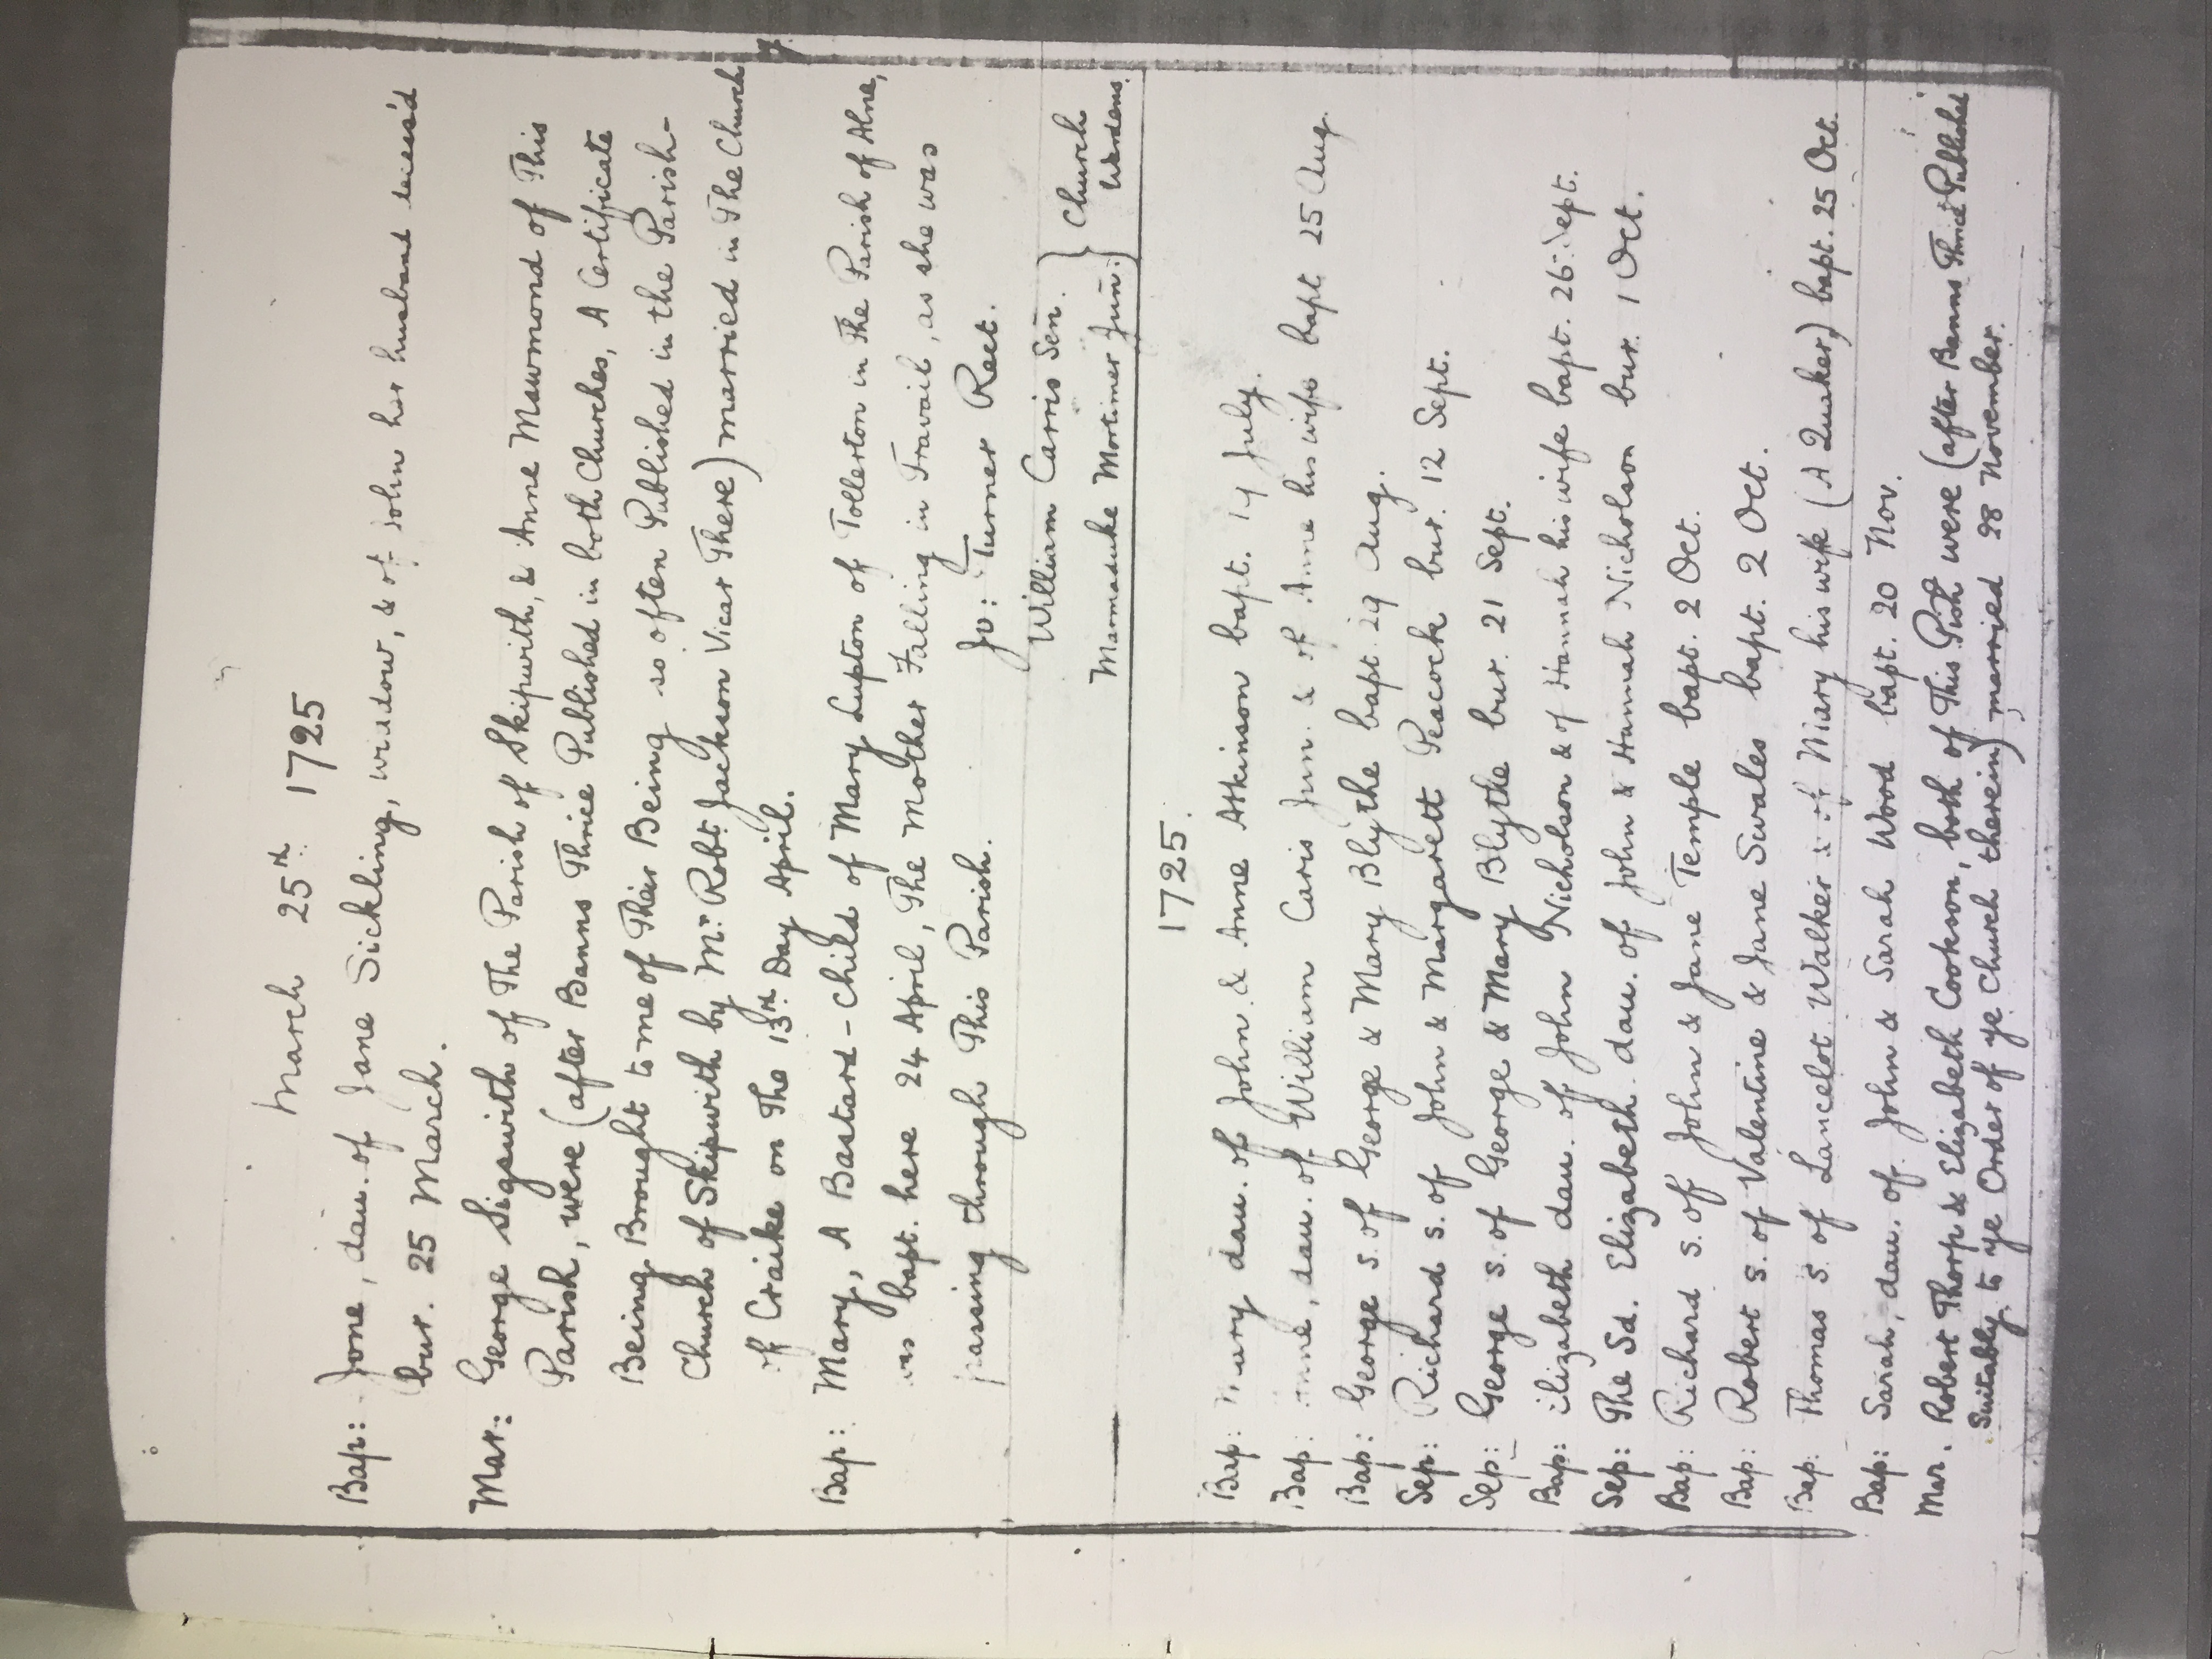 March 25th 1725
Bap: Jone, dau. of Jane Sickling, widow, & of John her husband deces'd
bur. 25 March.
Mar: George Sigswith of The Parish of Skipwith, & Anne Mawmond of This
Parish, were (after Banns Thrice Published in both Churches, A Certificate
Being Brought to me of Their Being so often Published in the Parish-
Church of Skipwith by Mr. Robt. Jackson Vicar There) married in The Church
of Craike on The 13th Day April.
Bap: Mary, A Bastard-Child of Mary Lupton of Tollerton in The Parish of Alne,
was bapt. here 24 April, The Mother Falling in Travail, as she was
passing through This Parish.
Jo: Turner Rect.
William Carris Sen. } Church
Marmaduke Mortimer Jun: } Wardens
1725.
Bap: Mary dau. of John & Anne Atkinson bapt. 19 July.
Bap: Anne, dau. of William Caris Jun. & of Anne his wife bapt 25 Aug.
Bap: George s. of George & Mary Blythe bapt. 29 Aug.
Sep: Richard s. of John & Margarett Peacock bur. 12 Sept.
Sep: George s. of George & Mary Blythe bur. 21 Sept.
Bap: Elizabeth dau. of John Nicholson & of Hannah his wife bapt. 26 Sept.
Sep: The Sd. Elizabeth dau. of John & Hannah Nicholson bur. 1 Oct.
Bap: Richard s. of John & Jane Temple bapt. 2 Oct.
Bap: Robert s. of Valentine & Jane Swales bapt. 2 Oct.
Bap: Thomas s. of Lancelot Walker & of Mary his wife (A Quaker) bapt. 25 Oct.
Bap: Sarah, dau. of John & Sarah Wood bapt. 20 Nov.
Mar. Robert Thorp & Elizabeth Cookson, both of This Pish were (after Banns Thrice Published
Suitably to ye Order of ye Church therein) married 28 November.